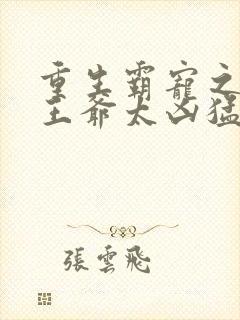 重生霸寵之
王爺太凶猛
張雲飛